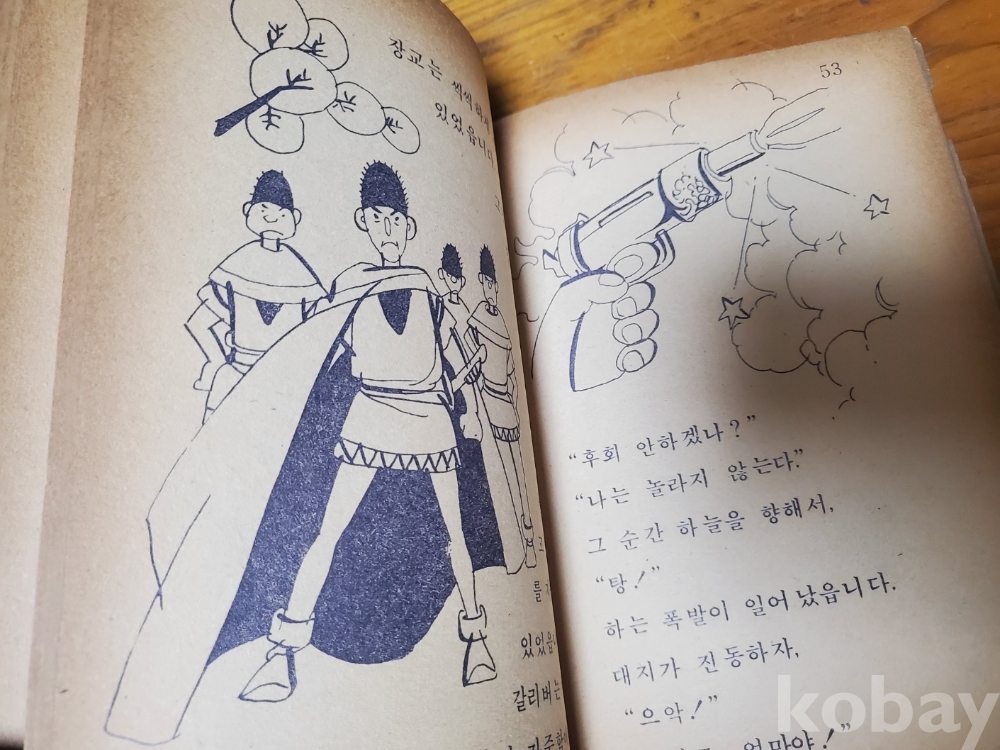 장교는 씩씩하게
있었읍니다
그
를
있었읍
갈리버는
53
“후회 안하겠나?”
“나는 놀라지 않는다.”
그 순간 하늘을 향해서,
“탕!”
하는 폭발이 일어 났읍니다.
대지가 진동하자,
“으악!”
엄마야!”
kobay